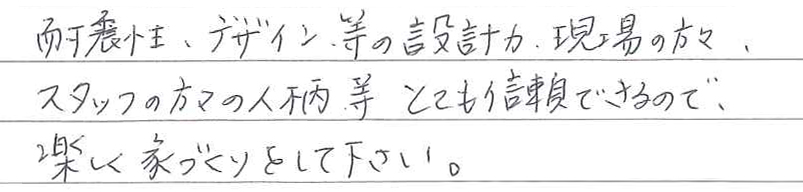 耐震性、デザイン等の設計力、現場の方々、
スタッフの方々の人柄等 とても信頼できるので、
楽しく家づくりをして下さい。